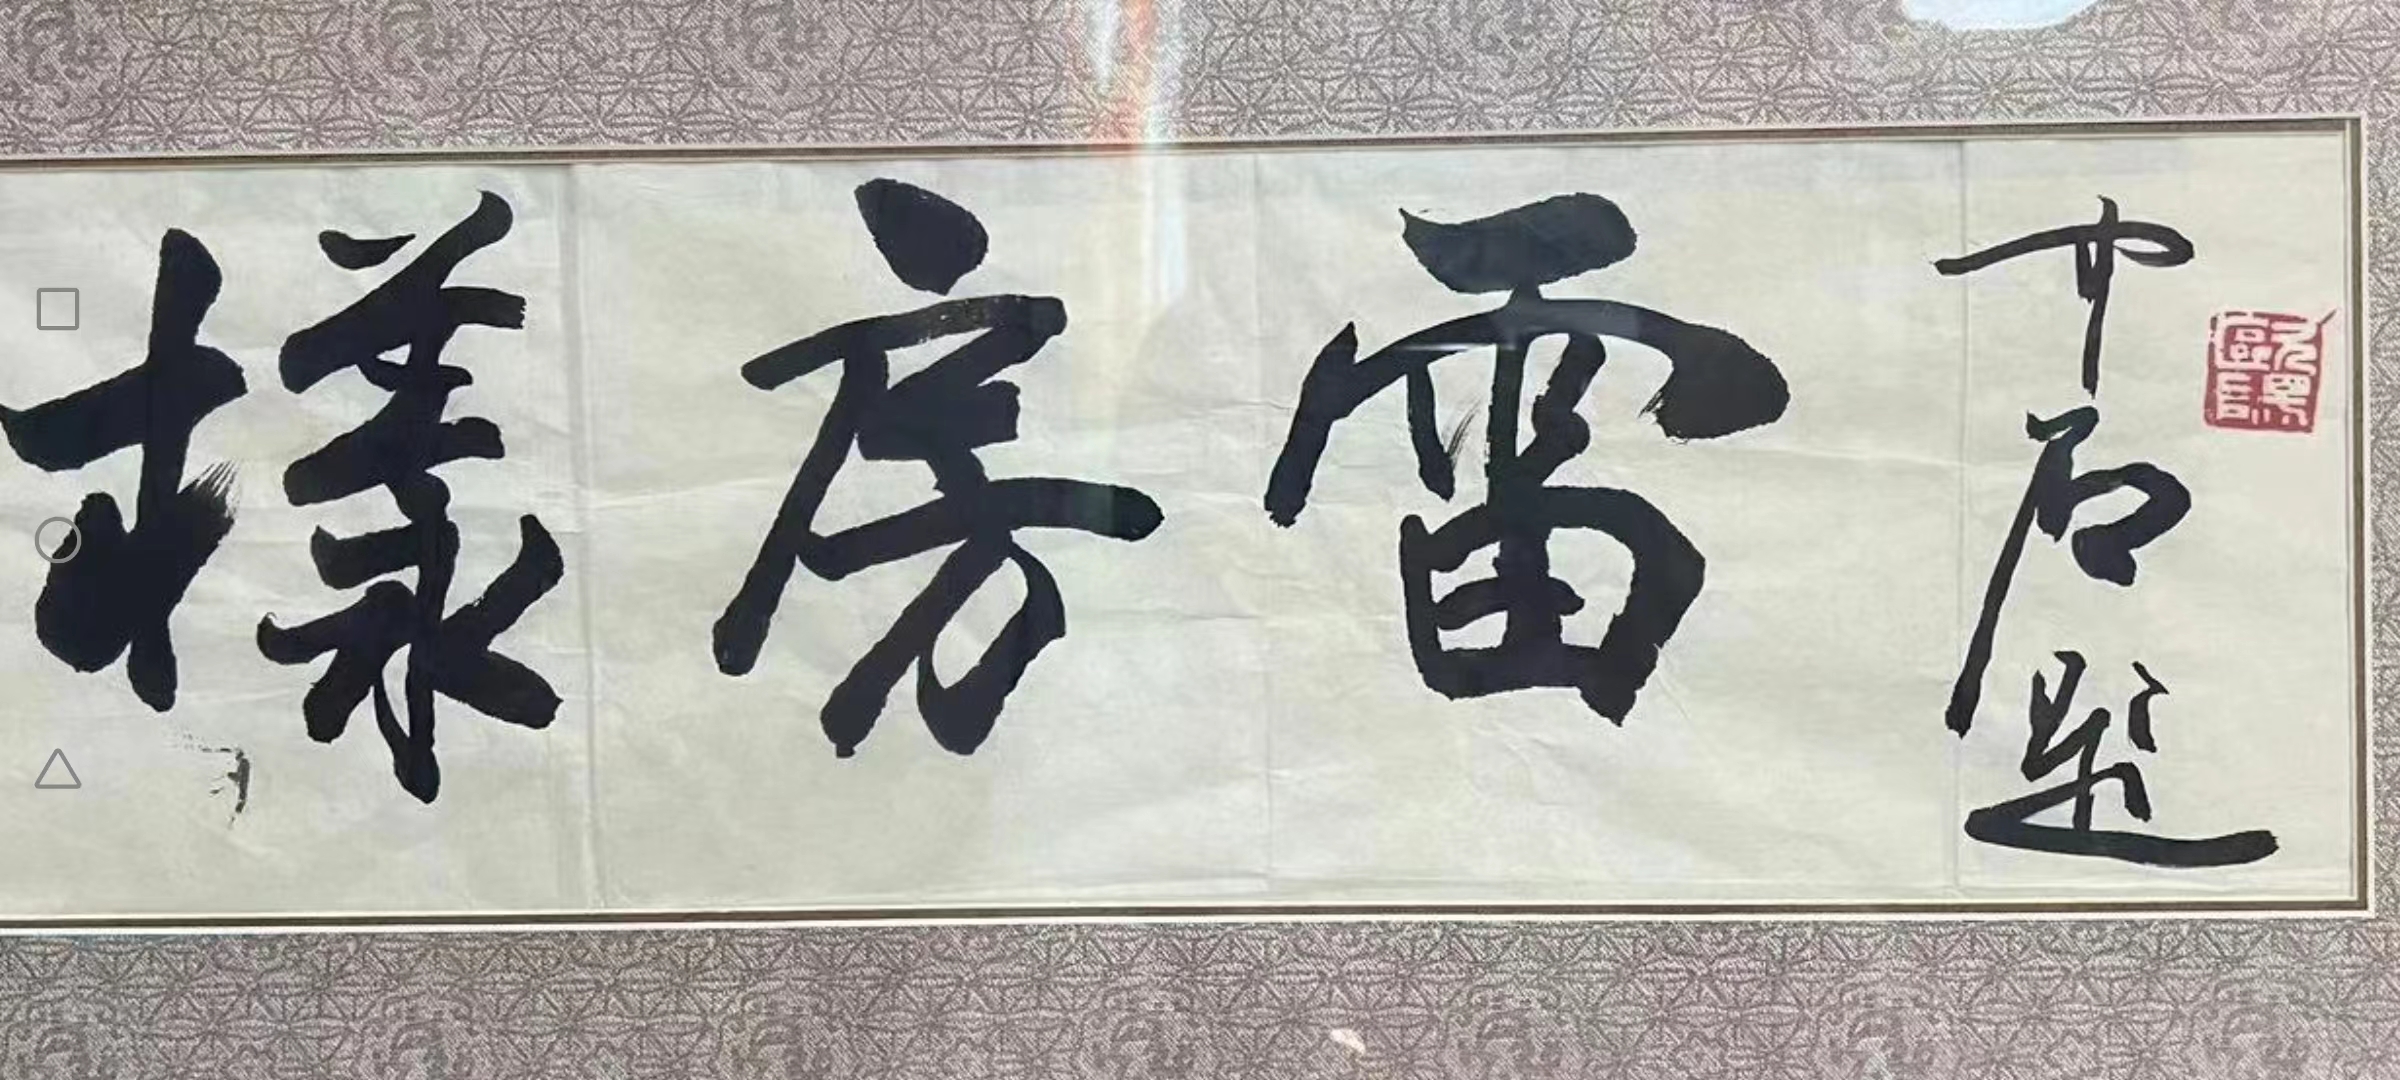 樣房雷
中石題